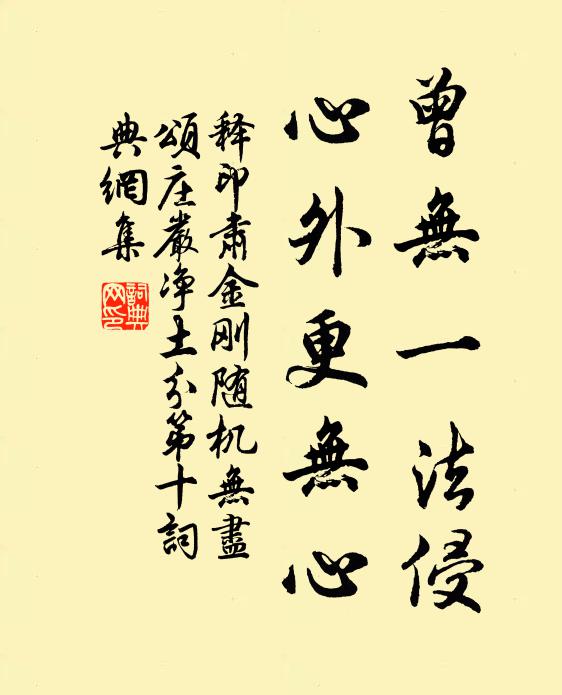 曾無一法侵
心外更無心
释印肃金刚随机無盡
頌庄嚴净土分第十詞
典網集
詞典網印